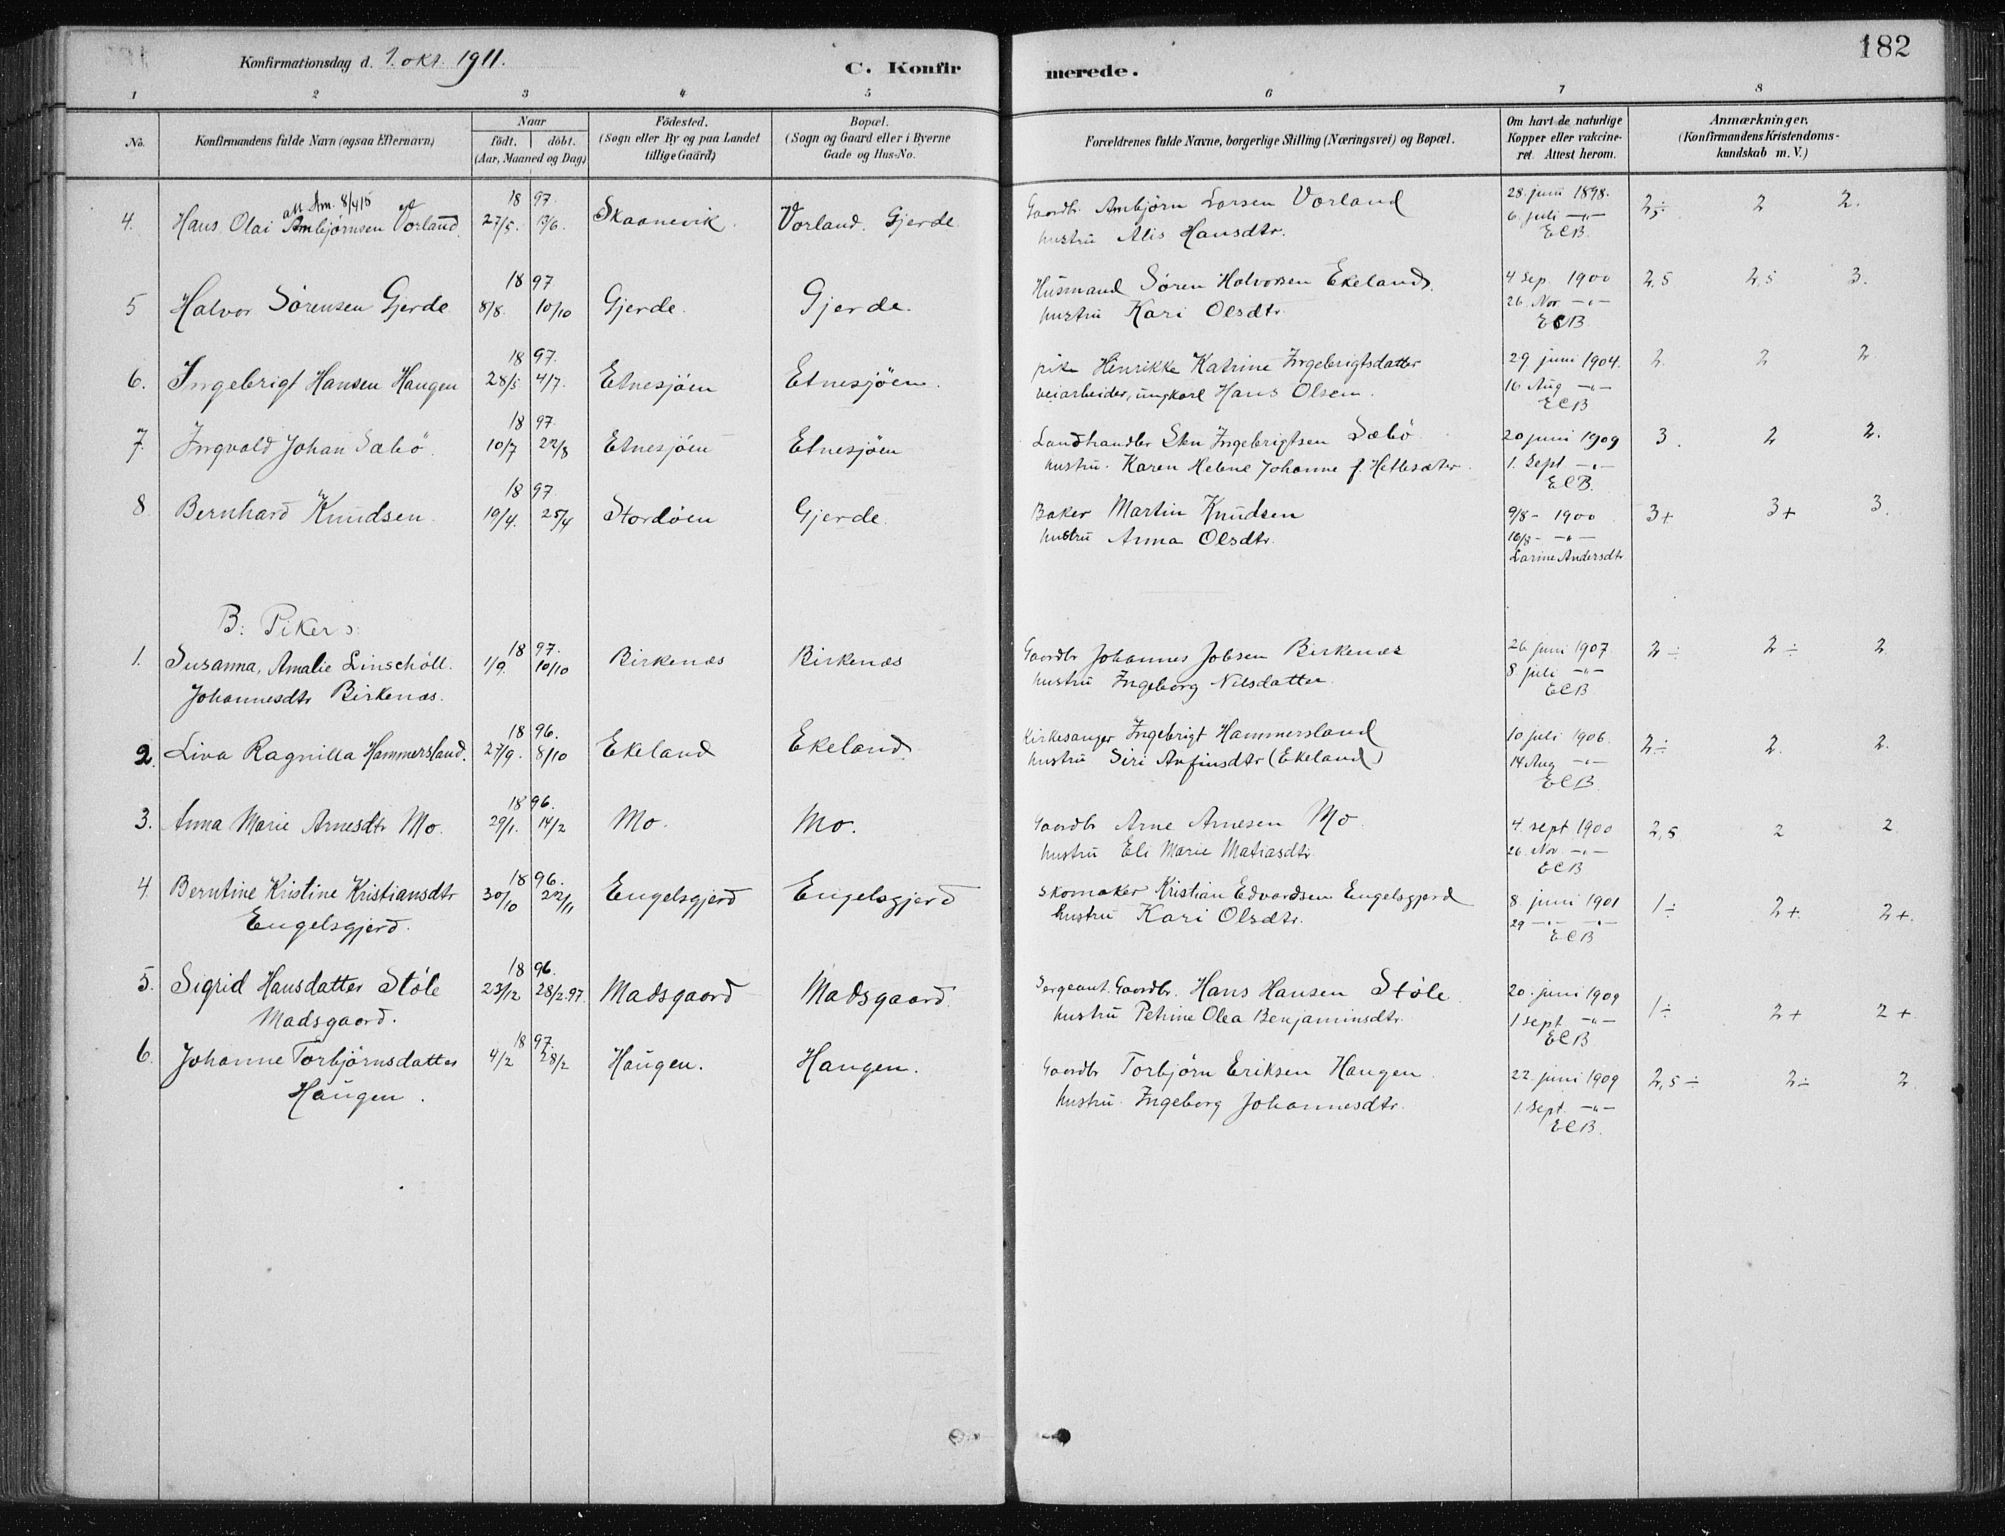 182
Konfirmationsdag d. 1. okt. 1911.
C. Konfirmerede.
1 2 3 4 5 6 7 8
No.
Konfirmandens fulde Navn (ogsaa Efternavn)
Naar
födt. döbt.
(Aar, Maaned og Dag)
Födested.
(Sogn eller By og paa Landet
tillige Gaard)
Bopæl.
(Sogn og Gaard eller i Byerne
Gade og Hus-No.
Forældrenes fulde Navne, borgerlige Stilling (Næringsvei) og Bopæl.
Om havt de naturlige
Kopper eller vakcine-
ret. Attest herom.
Anmærkninger.
(Konfirmandens Kristendoms-
kundskab m. V.)
att. Am. 8/4 15
4. Hans Olai Ambjørnsen Vorland. 18 97. 27/5. 13/6. Skaanevik. Vorland. Gjerde.
Gaardbr Ambjørn Larsen Vorland
hustru Alis Hansdtr.
28. juni 1898.
6. juli -"-
ECB.
2,5 2 2.
5 Halvor Sørensen Gjerde 18 97 8/8. 10/10 Gjerde. Gjerde.
Husmand Søren Halvorsen Ekeland.
hustru Kari Olsdtr.
4 Sep. 1900
26. Nov -"-
ECB
2,5 2,5 3.
6. Ingebrigt Hansen Haugen 18 97. 28/5 4/7. Etnesjöen Etnesjöen.
pike Henrikke Katrine Ingebrigtsdatter
veiarbeider, ungkarl Hans Olsen.
29 juni 1904.
16 Aug -"-
ECB
2. 2 2
7. Ingvald Johan Sæbö. 18 97. 10/7 22/8 Etnesjöen Etnesjöen
Landhandler Sten Ingebrigtsen Sæbö
hustru. Karen Helene Johanne f. Hettesæter.
20 juni 1909
1. Sept -"-
ECB.
3. 2 2.
8 Bernhard Knudsen. 18 97 19/4. 25/4 Stordöen Gjerde.
Baker Martin Knudsen
hustru Anna Olsdtr.
9/8 - 1900
16/8 - -"-
Larine Andersdtr
3+ 3+ 3.
B: Piker:
1. Susanna, Amalie Linschöll. 18 97. 1/9. 10/10 Birkenæs Birkenæs
Johannesdtr Birkenæs.
Gaardbr Johannes Jobsen Birkenæs
hustru Ingeborg Nilsdatter.
26 juni 1907.
8 juli -"-
ECB
2÷ 2÷ 2
2. Liva Ragnilla Hammersland. 18 96. 27/9. 8/10 Ekeland Ekeland.
Kirkesanger Ingebrigt Hammersland
hustru Siri Arfinsdtr (Ekeland)
10 juli 1906.
14 Aug -"-
ECB
2÷ 2. 2.
3. Anna Marie Arnesdtr Mo. 18 96. 29/1. 14/2 Mo. Mo.
Gaardbr Arne Arnesen Mo.
hustru Eli Marie Matiasdtr.
4. sept 1900
26. Nov. -"-
ECB
2,5 2 2
4. Berntine Kristine Kristiansdtr 18 96. 30/10 22/11 Engelsgjerd Engelsgjerd
Engelsgjerd.
skomaker Kristian Edvardsen Engelsgjerd
hustru Kari Olsdtr.
8. juni 1901
29 -"- -"-
ECB
1÷ 2+ 2+.
5. Sigrid Hansdatter Støle 18 96. 23/12 28/2.97. Madsgaard Madsgaard.
Madsgaard.
Sergeant. Gaardbr. Hans Hansen Støle.
hustru Petrine Olea Benjaminsdtr.
20. juni 1909
1 sept -"-
ECB
1÷ 2+ 2+
6. Johanne Torbjørnsdatter 18 97. 4/2 28/2 Haugen. Haugen.
Haugen.
Gaardbr Torbjørn Eriksen Haugen.
hustru. Ingeborg Johannesdtr.
22. juni 1909
1. Sept. -"-
ECB.
2,5÷ 2÷ 2.